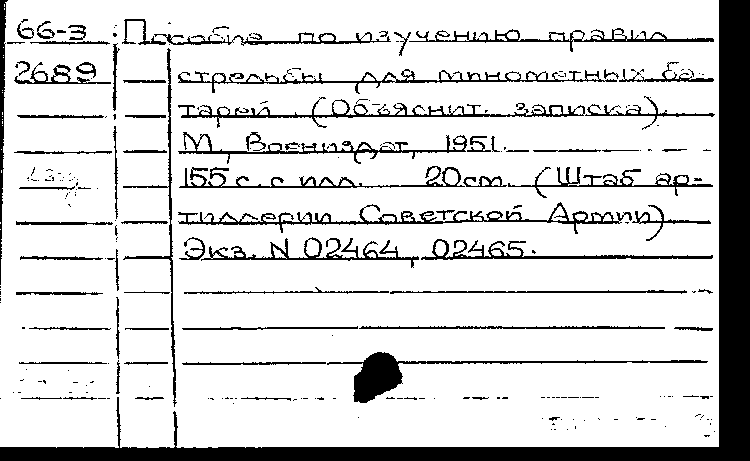 66-3 Пособие по изучению правил
2689 стрельбы для минометных ба-
тарей (Объяснит. записка).
М., Воениздат, 1951.
155 с. с илл. 20 см. (Штаб ар-
тиллерии Советской Армии)
Экз. N 02464, 02465.